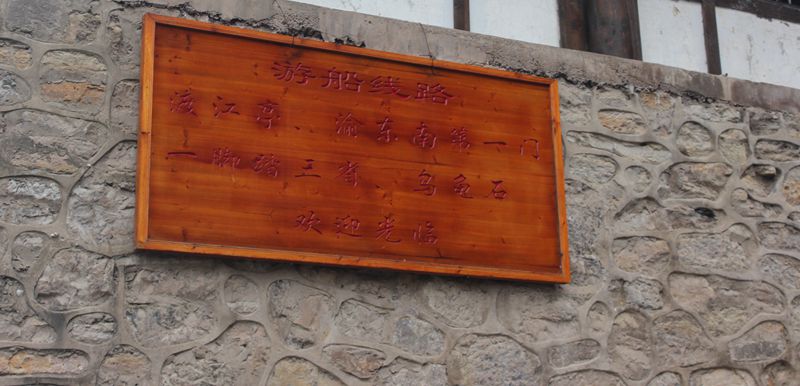 游船线路
渡江亭、渝东南第一门
一脚踏三省、乌龟石
欢迎光临